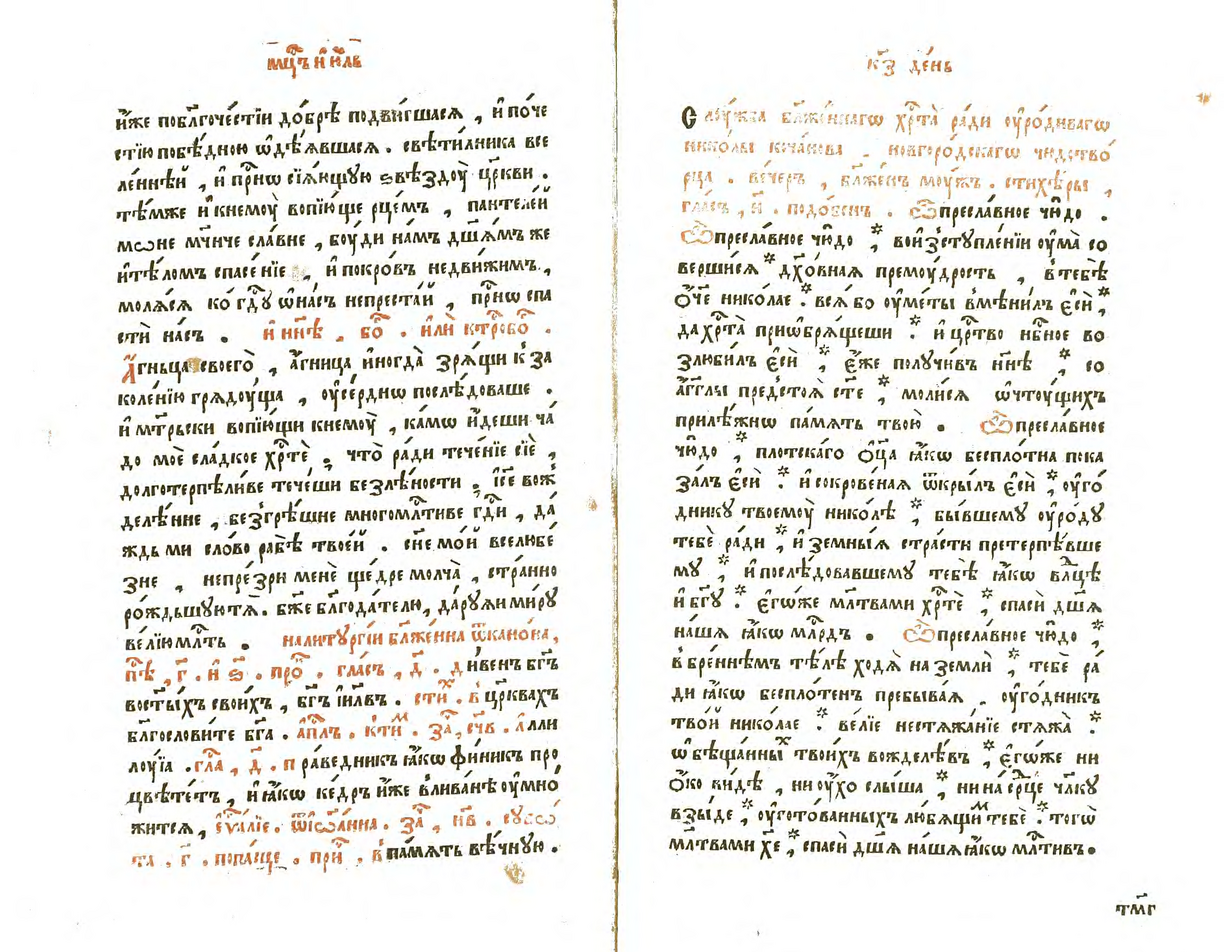 мцъ и҆ю́ль
и҆́же побл҃гоче́стїи до́брѣ подви́гшася , и҆ по́че
стїю побѣ́дною ѡ҆дѣ́явшася . свѣти́лника все
ле́ннѣй , и҆ при́снѡ сїя́ющую ѕвѣздоу̀ цр҃кви .
тѣ́мже и҆ кнемоу̀ вопїю́ще рце́мъ , пантеле́й
мѡне мч҃нче сла́вне , боу́ди на́мъ дш҃а́мъ же
и҆ тѣло́мъ спасе́нїе , и҆ покро́въ недви́жимъ ,
моля́ся ко́ гдⷭ҇ꙋ ѡ҆ на́съ непреста́й , при́снѡ спа
стѝ на́съ . и҆ ни́нѣ , бо҃ . и҆лѝ кртⷭ҇обо҃ .
А҆́гньца своего̀ , а҆́гница и҆ногда̀ зря́щи к̾ за
коле́нїю гряду́ща , оу҆се́рднѡ послѣ́доваше .
и҆ мт҃рьски вопїю́щи кнемоу̀ , ка́мѡ и҆́деши ча́
до моѐ сла́дкое хрⷭ҇тѐ , что̀ ра́ди тече́нїе сїѐ ,
долготерпѣли́ве тече́ши без̾ лѣ́ности . і҆с҃е вож
делѣ́нне , без̾грѣ́шне многомлⷭ҇тиве гдⷭ҇и , да́
ждь ми сло́во рабѣ̀ твое́й . сн҃е мо́й вселюбе́
зне , непре́зри менѐ ще́дре молча̀ , стра́нно
ро́ждьшуютѧ̀ . бж҃е бл҃года́телю , да́руяи ми́ру
ве́лїю млⷭ҇ть . на литургі́и бл҃же́нна ѿ кано́на ,
пѣ̀ , г҃ . и҆ ѕ҃ . про̑ , гла́съ , д҃ . ди́венъ бг҃ъ
во ст҃ы́хъ свои́хъ , бг҃ъ і҆и҃лвъ . сти̑х . в̾ цр҃квахъ
бл҃гослови́те бг҃а . а҆п҃лъ . к̾ ти̑м . за̑ , сч҃в . а҆лли
лоуїа . гла̑ , д҃ . пра́ведникъ ꙗ҆́кѡ фи́никъ про
цвѣте́тъ , и҆ ꙗ҆́кѡ ке́дръ и҆́же в̾лива́нѣ оу҆мно́
жится , є҆ѵⷢ҇лїе . ѿ і҆ѡа́нна . за̑ , нв҃ . суббѡ
та , г҃ . по па́сце . при̑ , в̾ па́мять вѣ́чную .
кз҃ де́нь
Слу́жба бл҃же́ннагѡ хрⷭ҇та̀ ра́ди оу҆ро́дивагѡ
нико́лы коча́нова , новгоро́дскагѡ чюдотво́
рца . ве́черъ , бл҃же́нъ моу́жъ . стихе́ры ,
гла́съ , и҃ . подо́бенъ . Ѽ пресла́вное чю́до .
Ѽ пресла́вное чю́до , вои҆з̾ступле́нїи оу҆ма̀ со
верши́ся дх҃о́вная премоу́дрость , в̾ тебѣ̀
о҆́ч҃е нико́лае . вся́ бо оу҆ме́ты в̾мѣни́лъ є҆сѝ ,
да хрⷭ҇та̀ приѡбря́щеши . и҆ црⷭ҇тво нбⷭ҇ное во
злюби́лъ є҆сѝ , є҆́же получи́въ ни́нѣ , со
а҆́гг҃лы предстоя̀ ст҃е , моли́ся ѡ҆ чту́щихъ
прилѣ́жнѡ па́мять твою̀ . Ѽ пресла́вное
чю́до , пло́тскаго ѻ҆ц҃а ꙗ҆́кѡ беспло́тна пока
за́лъ є҆сѝ . и҆ сокрове́ная ѿкры́лъ є҆сѝ , оу҆го́
днику твоемоу̀ нико́лѣ , бы́вшему оу҆ро́ду
тебѐ ра́ди , и҆ земны́я стра́сти претерпѣ́вше
му , и҆ послѣ́довавшему тебѣ̀ ꙗ҆́кѡ влⷣцѣ
и҆ бг҃у . є҆гѡ́же млⷭ҇твами хрⷭ҇тѐ , спасѝ дш҃а
на́шя ꙗ҆́кѡ млⷭ҇рдъ . Ѽ пресла́вное чю́до ,
в̾ бре́ннѣмъ тѣ́лѣ ходя̀ на землѝ , тебѐ ра́
ди ꙗ҆́кѡ беспло́тенъ пребыва́я , оу҆го́дникъ
тво́й нико́лае . ве́лїе нестяжа́нїе стяжа̀ .
ѡ҆бѣща́нныхъ твои́хъ вожделѣ́въ , є҆гѡ́же ни
ѻ҆́ко ви́дѣ , ни оу҆́хо слы́ша , ни на срⷣце чл҃ку
взы́де , оу҆гото́ванныхъ лю́бящим тебѐ . тогѡ̀
млⷭ҇твами хе҃ , спасѝ дш҃а на́шя ꙗ҆́кѡ млⷭ҇тивъ .
тм҃г